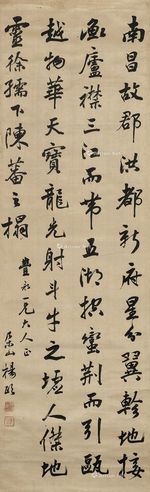 南昌故郡洪都新府星分翼軫地接
衡廬襟三江而帶五湖控蠻荊而引甌
越物華天寶龍光射斗牛之墟人傑地
靈徐孺下陳蕃之榻
大人正